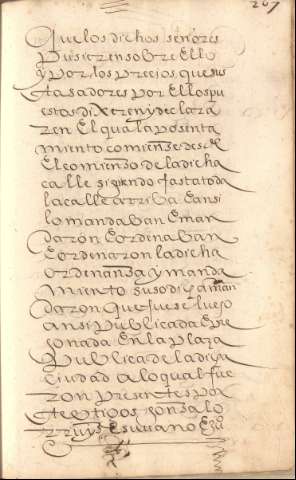 267
Que los dichos señores
pusieren sobre Ello
y por los precios que sus
tasadores por Ellos pu
estos dixeren y declara
ren El qual aposenta
miento comience desde
El comienço de la dicha
calle siguiendo fasta toda
la calle arriba E ansi
lo mandaban E man
daron E ordenaban
E ordenaron la dicha
ordenança y manda
miento susodi y aman
daron que fuese luego
ansi publicada E pre
gonada En la plaza
publica de la dicha
ciudad a lo qual fue
ron presentes por
testigos gonzalo
rruys Escrivano